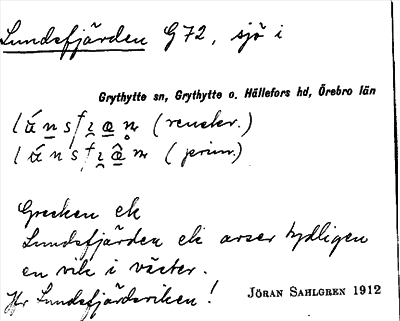 Lundsfjärden G72, sjö i
Grythytte sn, Grythytte o. Hällefors hd, Örebro län
(renskr.)
(prim.)
Grecken ek
Lundsfjärden ek avser tydligen
en vik i väster.
Jfr Lundsfjärdsviken!
JÖRAN SAHLGREN 1912